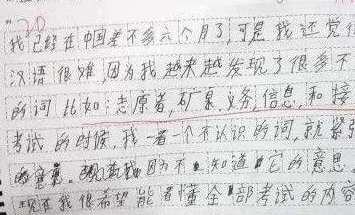 我已经在中国差不多六个月了,可是我还觉
汉语很难,因为我越来越发现了很多不
的词 比如:志原者,矿泉,义务,信息,和接
考试 的时候,我一看一个不认识的词,就紧
的意思。因为不知道它的意思
现在我很希望能看懂全部考试的内容